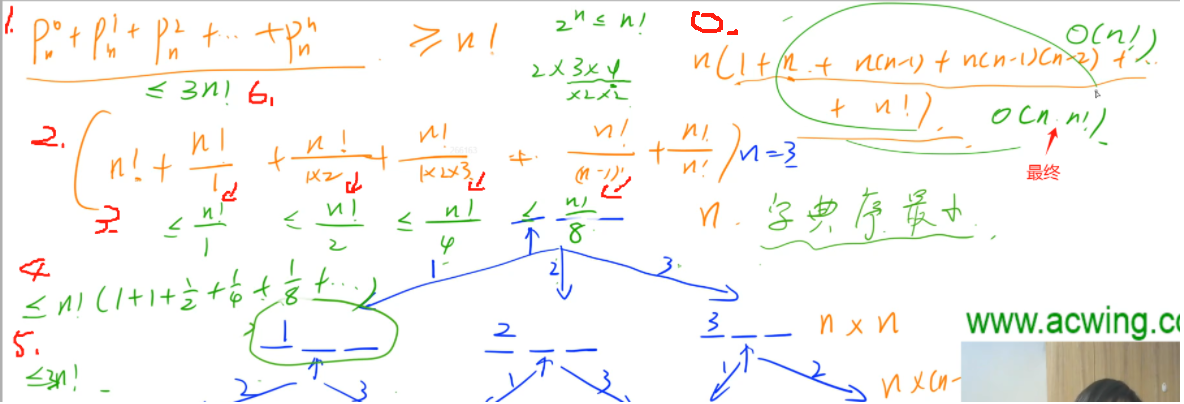 1.
P_n^0 + P_n^1 + P_n^2 + ... + P_n^n ≥ n!
≤ 3n! 6.
2^n ≤ n!
2×3×4
×2×2
0.
n(1+n + n(n-1) + n(n-1)(n-2) + ...
+ n!)
O(n!)
O(n·n!)
最终
2.
(n! + n!/1 + n!/1×2 + n!/1×2×3 + n!/(n-1)! + n!/n!) n=3
3
≤ n!/1 ≤ n!/2 ≤ n!/4 ≤ n!/8
n. 字典序最小.
4
≤ n!(1+1+1/2+1/4+1/8+...)
1 2 3
5.
≤3n!
1 _ _ 2 _ _ 3 _ _ n×n
2 3 1 3 1 2 n×(n-
www.acwing.co